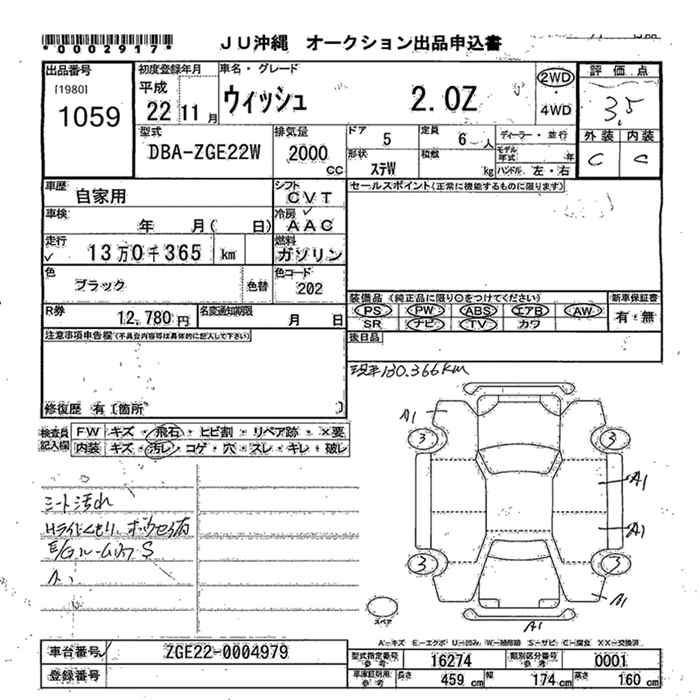 *0002917*
JU沖縄 オークション出品申込書
出品番号 初度登録年月 車名・グレード 評価点
[1980] 平成 2WD
1059 22 11月 ウィッシュ 2.0Z 4WD 3.5
外装 内装
C C
型式 排気量 ドア 5 定員 6人 ディーラー・並行
DBA-ZGE22W 2000 cc 形状 ステW 積数 kg モデル年式 年
ハンドル 左・右
車歴 自家用 シフト CVT セールスポイント(正常に機能するものに限ります)
車検 年 月( 日) 冷房 AAC
走行 13万0千365 km 燃料 ガソリン
色 ブラック 色替 色コード 202
R券 12,780円 名変通知期限 月 日
装備品 (純正品に限り○をつけてください) 新車保証書
PS PW ABS エアB AW 有・無
SR ナビ TV カワ
注意事項申告欄(不具合内容等は具体的に記入して下さい) 後日品
現車130.366km
修復歴 有 [箇所 ]
検査員記入欄 FW キズ・飛石・ヒビ割・リペア跡・×要
内装 キズ・汚レ・コゲ・穴・スレ・キレ・破レ
A1
3 3
A1
A1
3 3
A1
A1
シート汚れ
スペア
A=キズ E=エクボ U=凹み W=補修跡 S=サビ C=腐食 XX=交換済
車台番号 ZGE22-0004979
登録番号
型式指定番号 参考 16274 類別区分番号 参考 0001
車庫証明用 参考 長さ 459 cm 幅 174 cm 高さ 160 cm